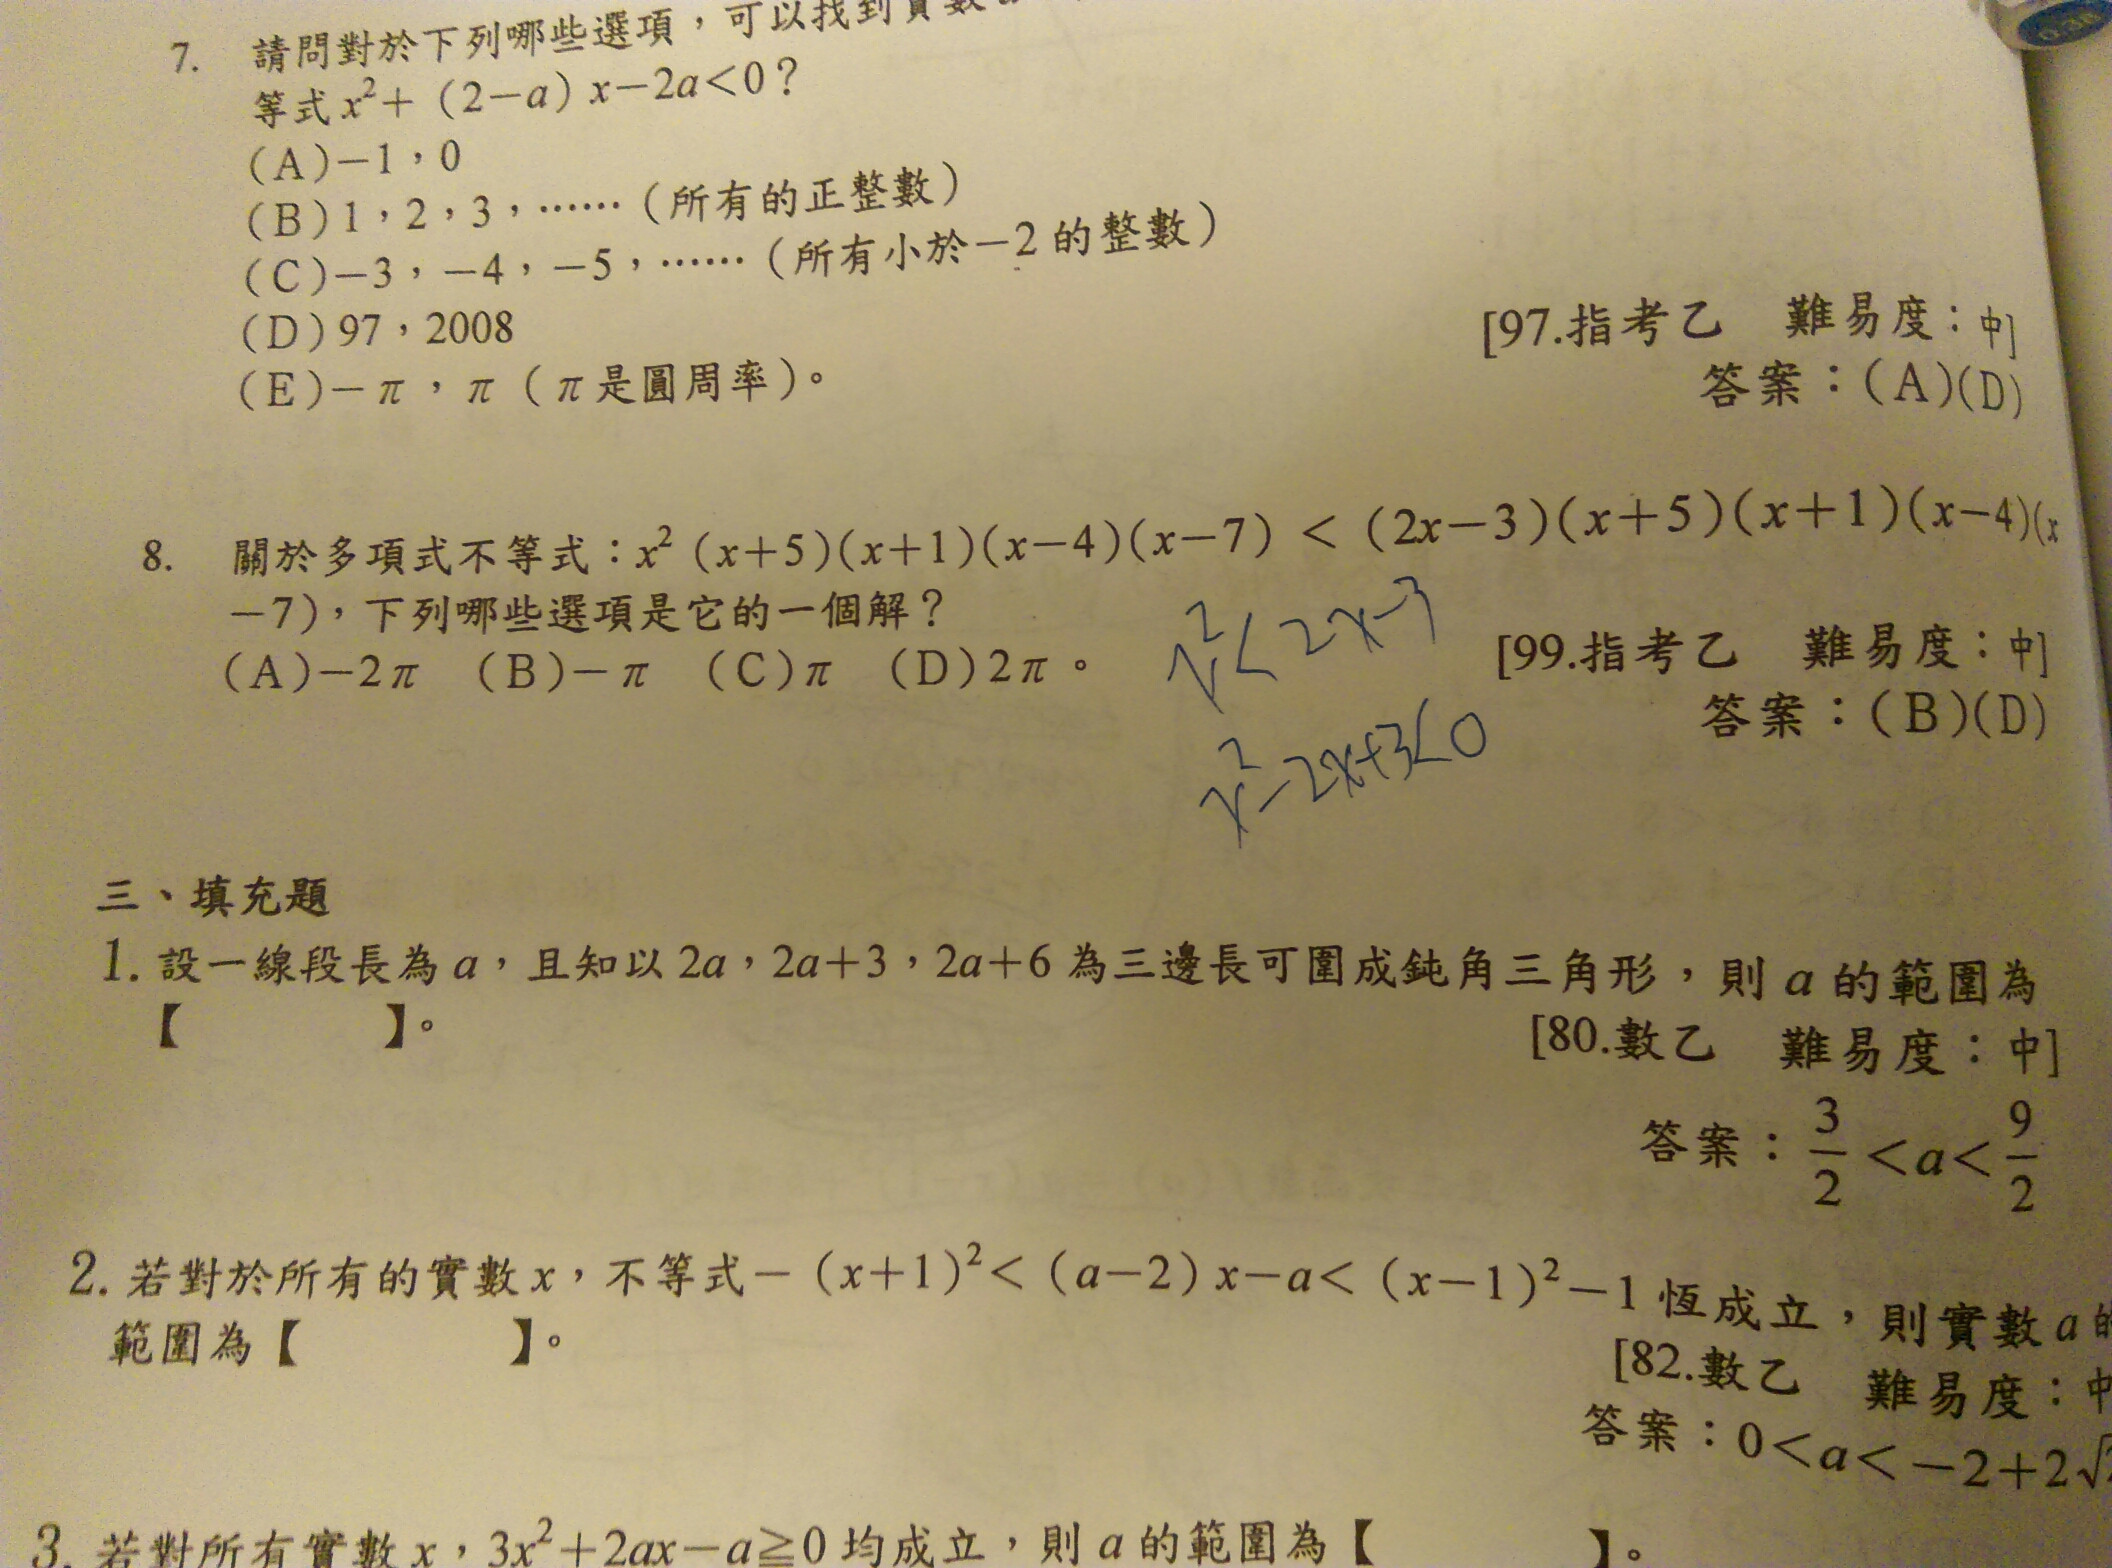 7. 請問對於下列哪些選項，可以找到實數a
等式x²＋（2－a）x－2a＜0？
(A)－1，0
(B)1，2，3，……（所有的正整數）
(C)－3，－4，－5，……（所有小於－2的整數）
(D)97，2008
(E)－π，π（π是圓周率）。
[97.指考乙 難易度：中]
答案：(A)(D)
8. 關於多項式不等式：x²(x＋5)(x＋1)(x－4)(x－7)＜(2x－3)(x＋5)(x＋1)(x－4)(x
－7)，下列哪些選項是它的一個解？
(A)－2π (B)－π (C)π (D)2π。
x²<2x-3
x²-2x+3<0
[99.指考乙 難易度：中]
答案：(B)(D)
三、填充題
1. 設一線段長為a，且知以2a，2a＋3，2a＋6為三邊長可圍成鈍角三角形，則a的範圍為
【 】。
[80.數乙 難易度：中]
答案：3/2＜a＜9/2
2. 若對於所有的實數x，不等式－（x＋1）²＜（a－2）x－a＜（x－1）²－1恆成立，則實數a的
範圍為【 】。
[82.數乙 難易度：中
答案：0＜a＜－2＋2√
3. 若對所有實數x，3x²＋2ax－a≧0均成立，則a的範圍為【 】。